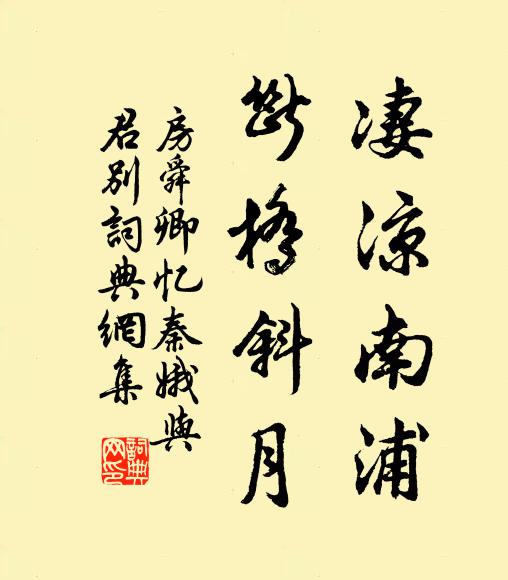 凄涼南浦
斷橋斜月
房舜卿忆秦娥與
君别詞典網集
詞典
网印